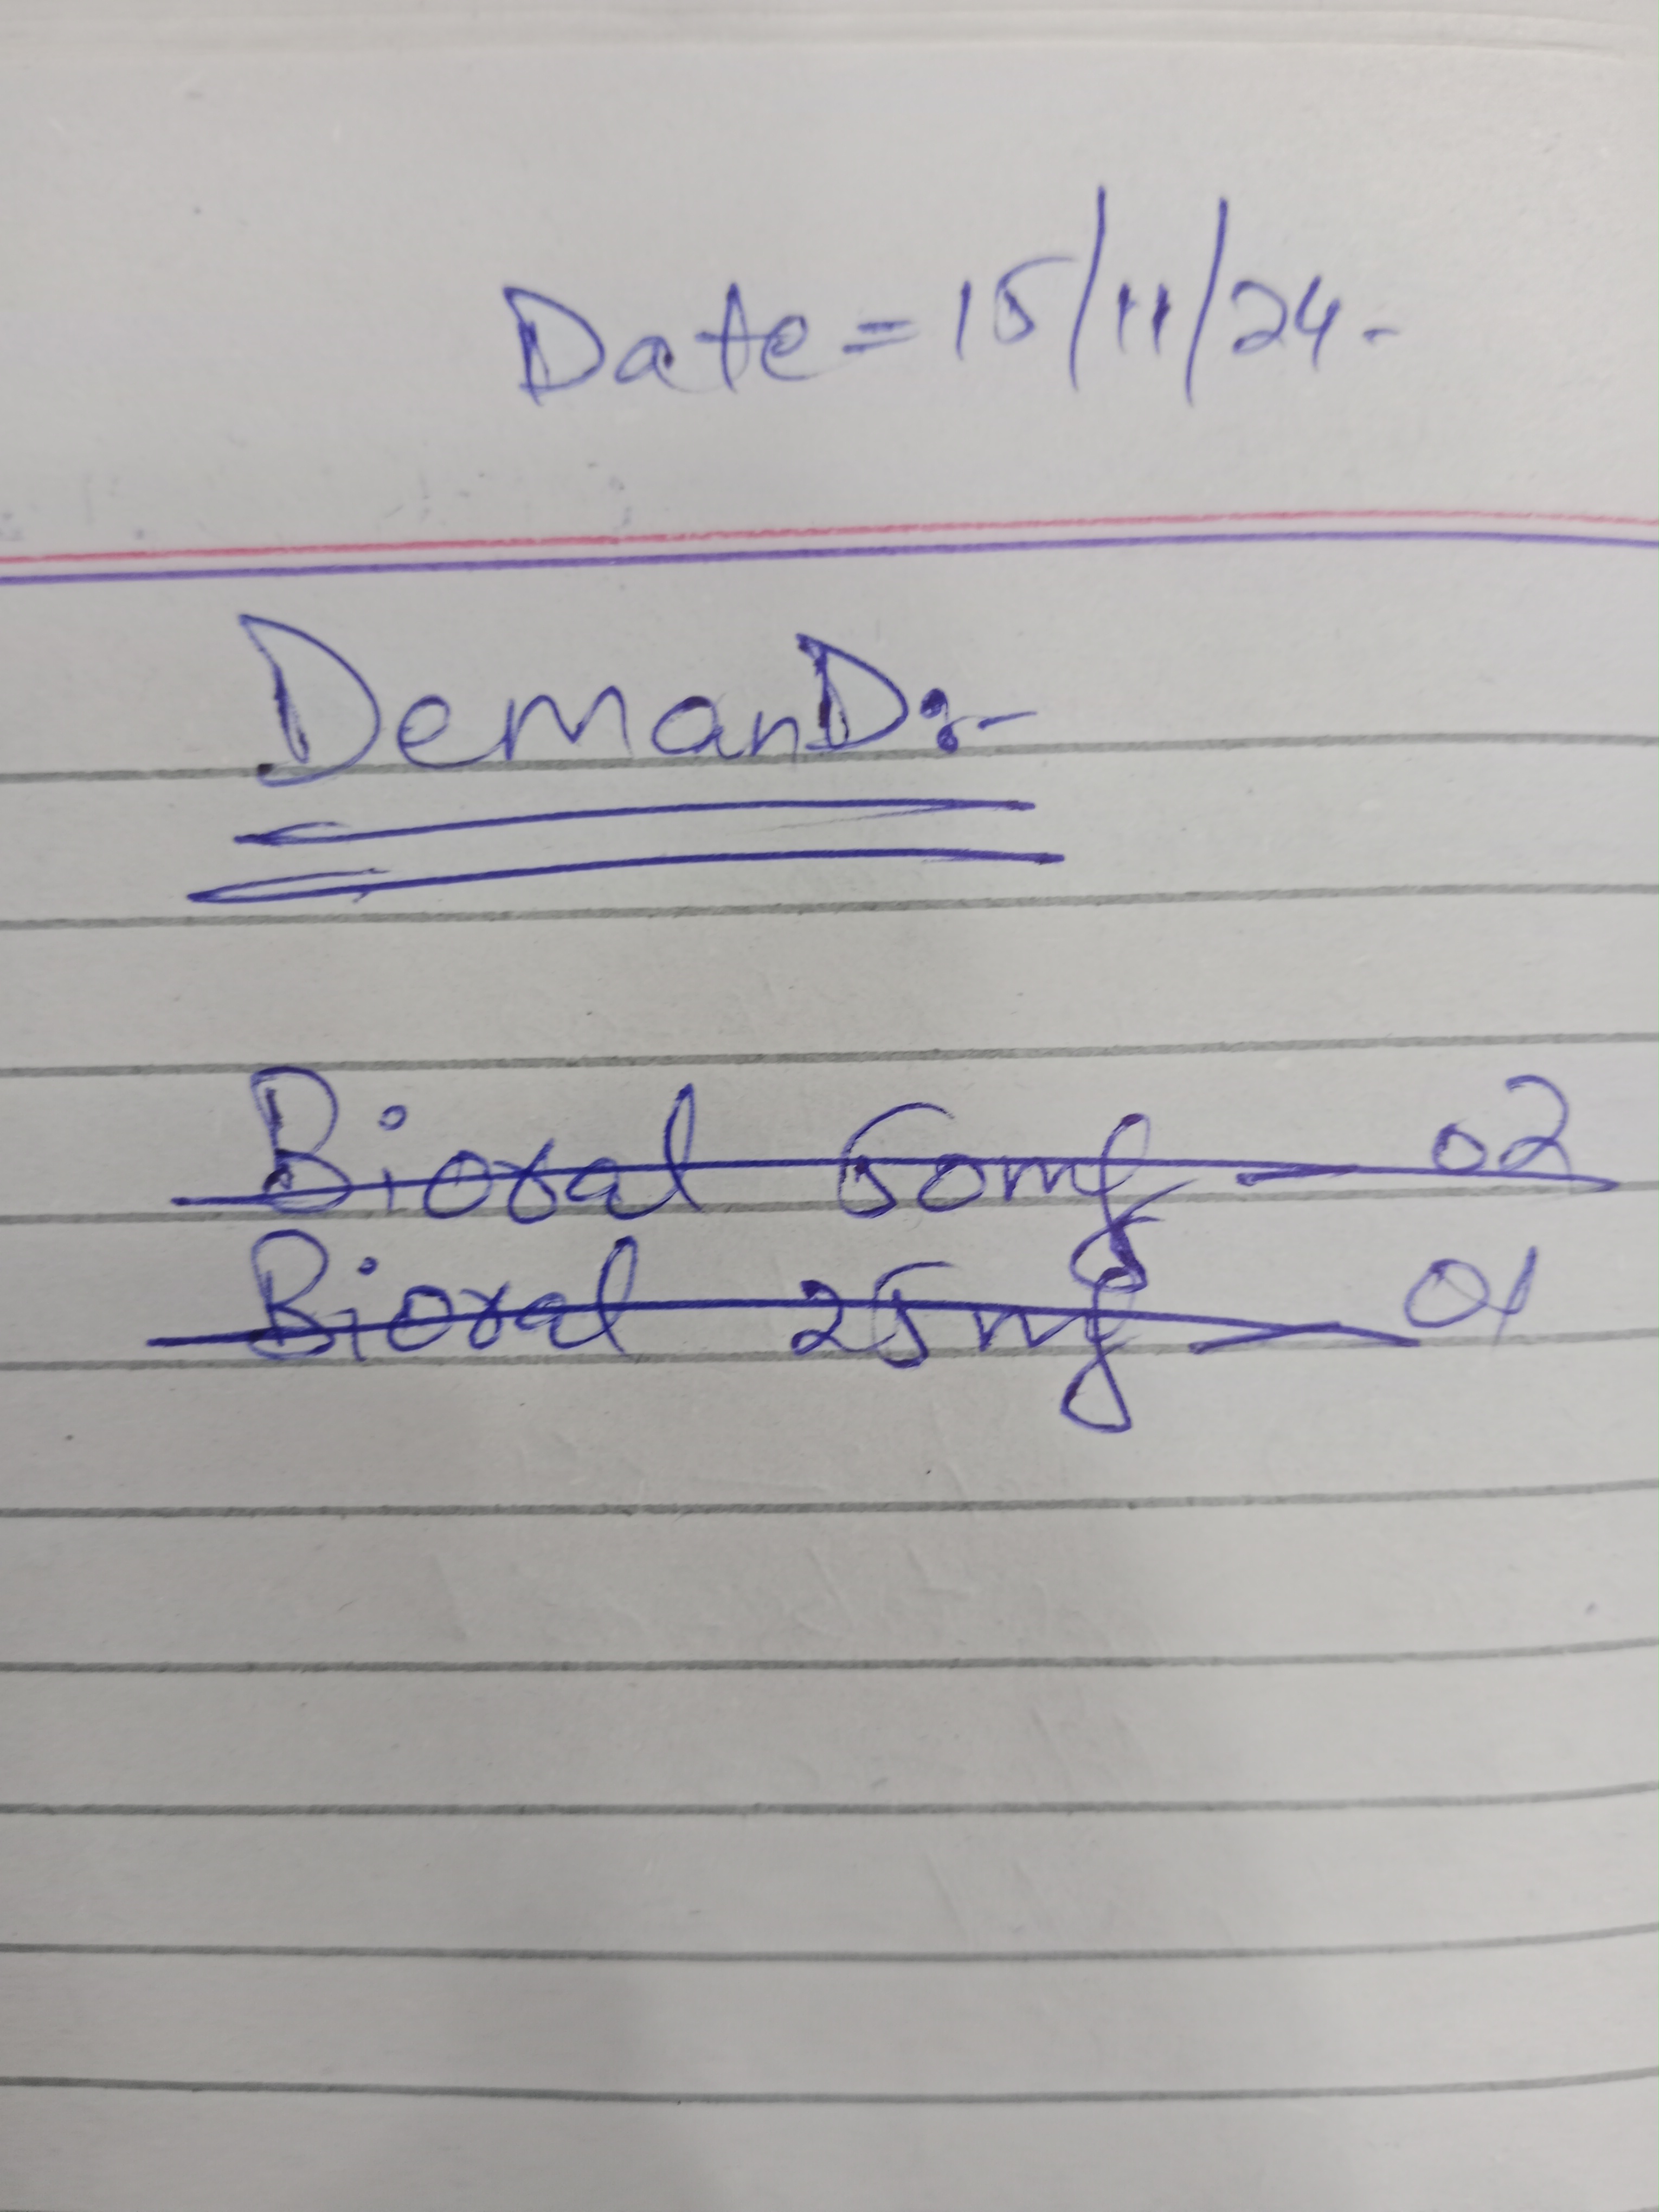 Date = 15/11/24.
DemanD:-
Bioral 50mg — 02
Bioral 25mg — 01